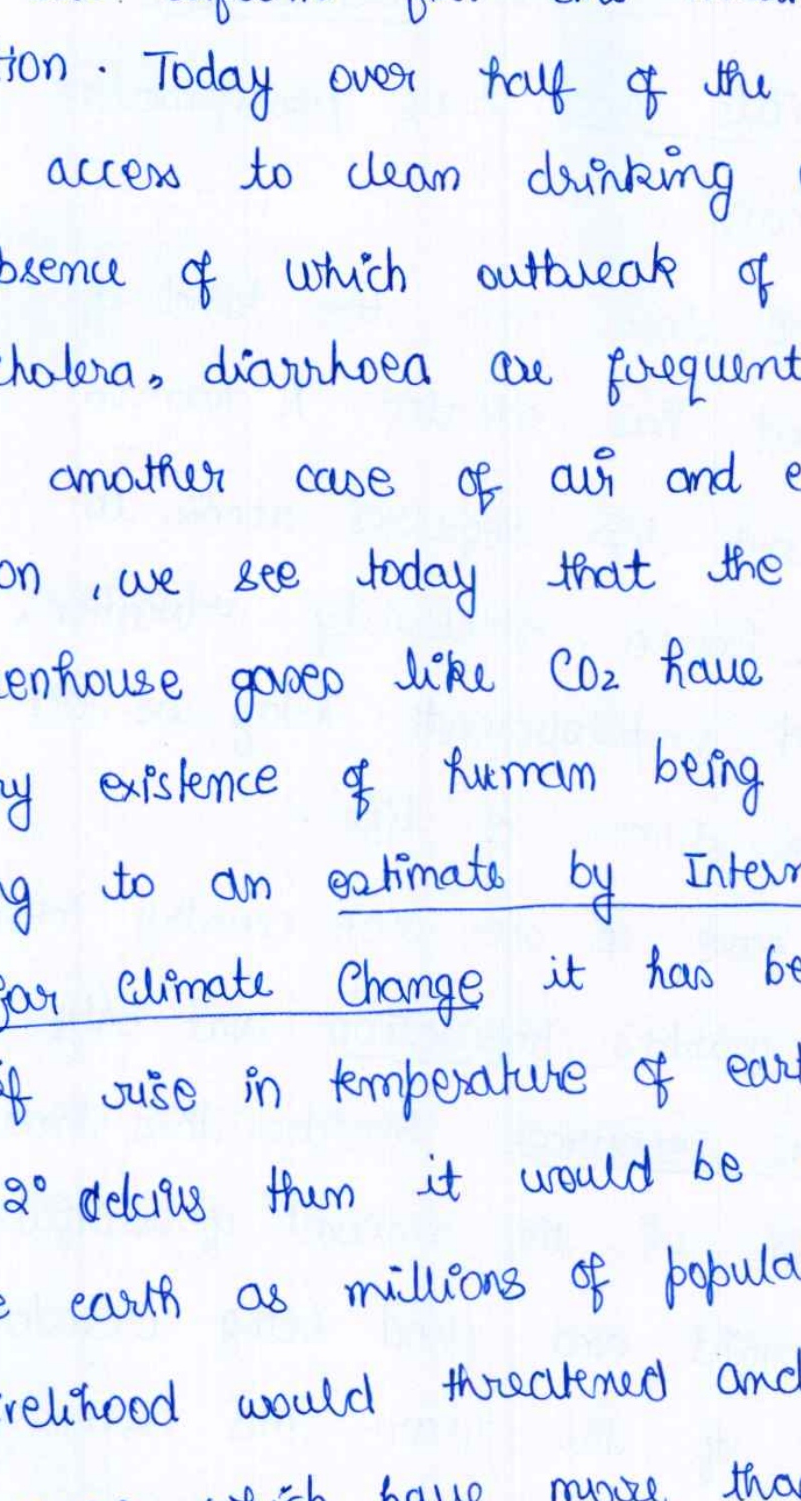 tion. Today over half of the
access to clean drinking
bsence of which outbreak of
cholera, diarrhoea are frequent
another case of air and e
on, we see today that the
enhouse gases like CO2 have
y existence of human being
ng to an estimate by Intern
for Climate Change it has be
if rise in temperature of eart
2° delcius then it would be
e earth as millions of popula
velihood would threatened and
which have more tha